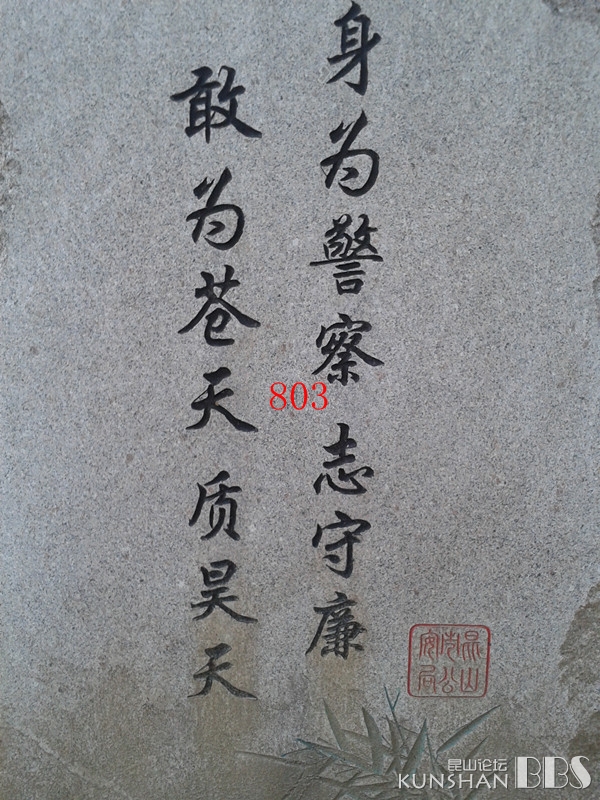 身为警察志守廉
敢为苍天质昊天
803
昆山市公安局
昆山论坛
KUNSHAN BBS